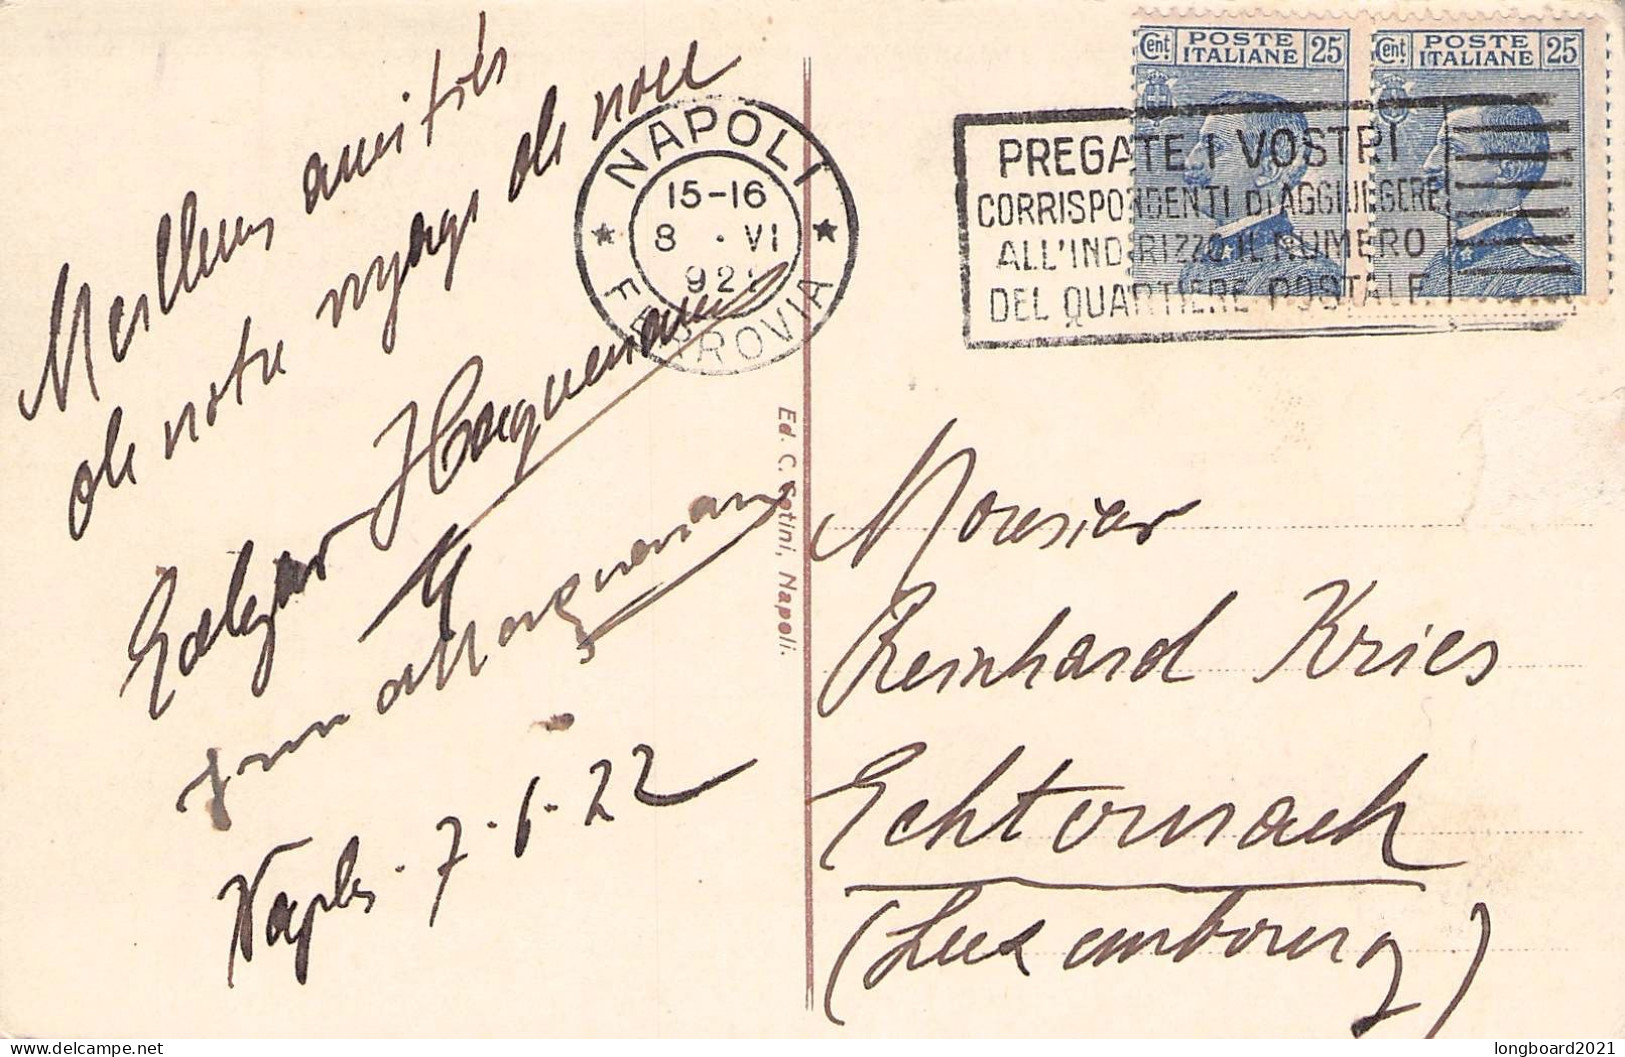 Meilleures amitiés
de notre voyage de noce
Edgar Hacquenauer
Naples. 7.6.22
NAPOLI
15-16
8 . VI
922
FERROVIA
Cent POSTE ITALIANE 25
Cent POSTE ITALIANE 25
PREGATE I VOSTRI
CORRISPONDENTI DI AGGIUGERE
ALL'INDIRIZZO IL NUMERO
DEL QUARTIERE POSTALE
Ed. C. Cotini, Napoli.
Monsieur
Reinhard Kries
Echternach
(Luxembourg)
longboard2021